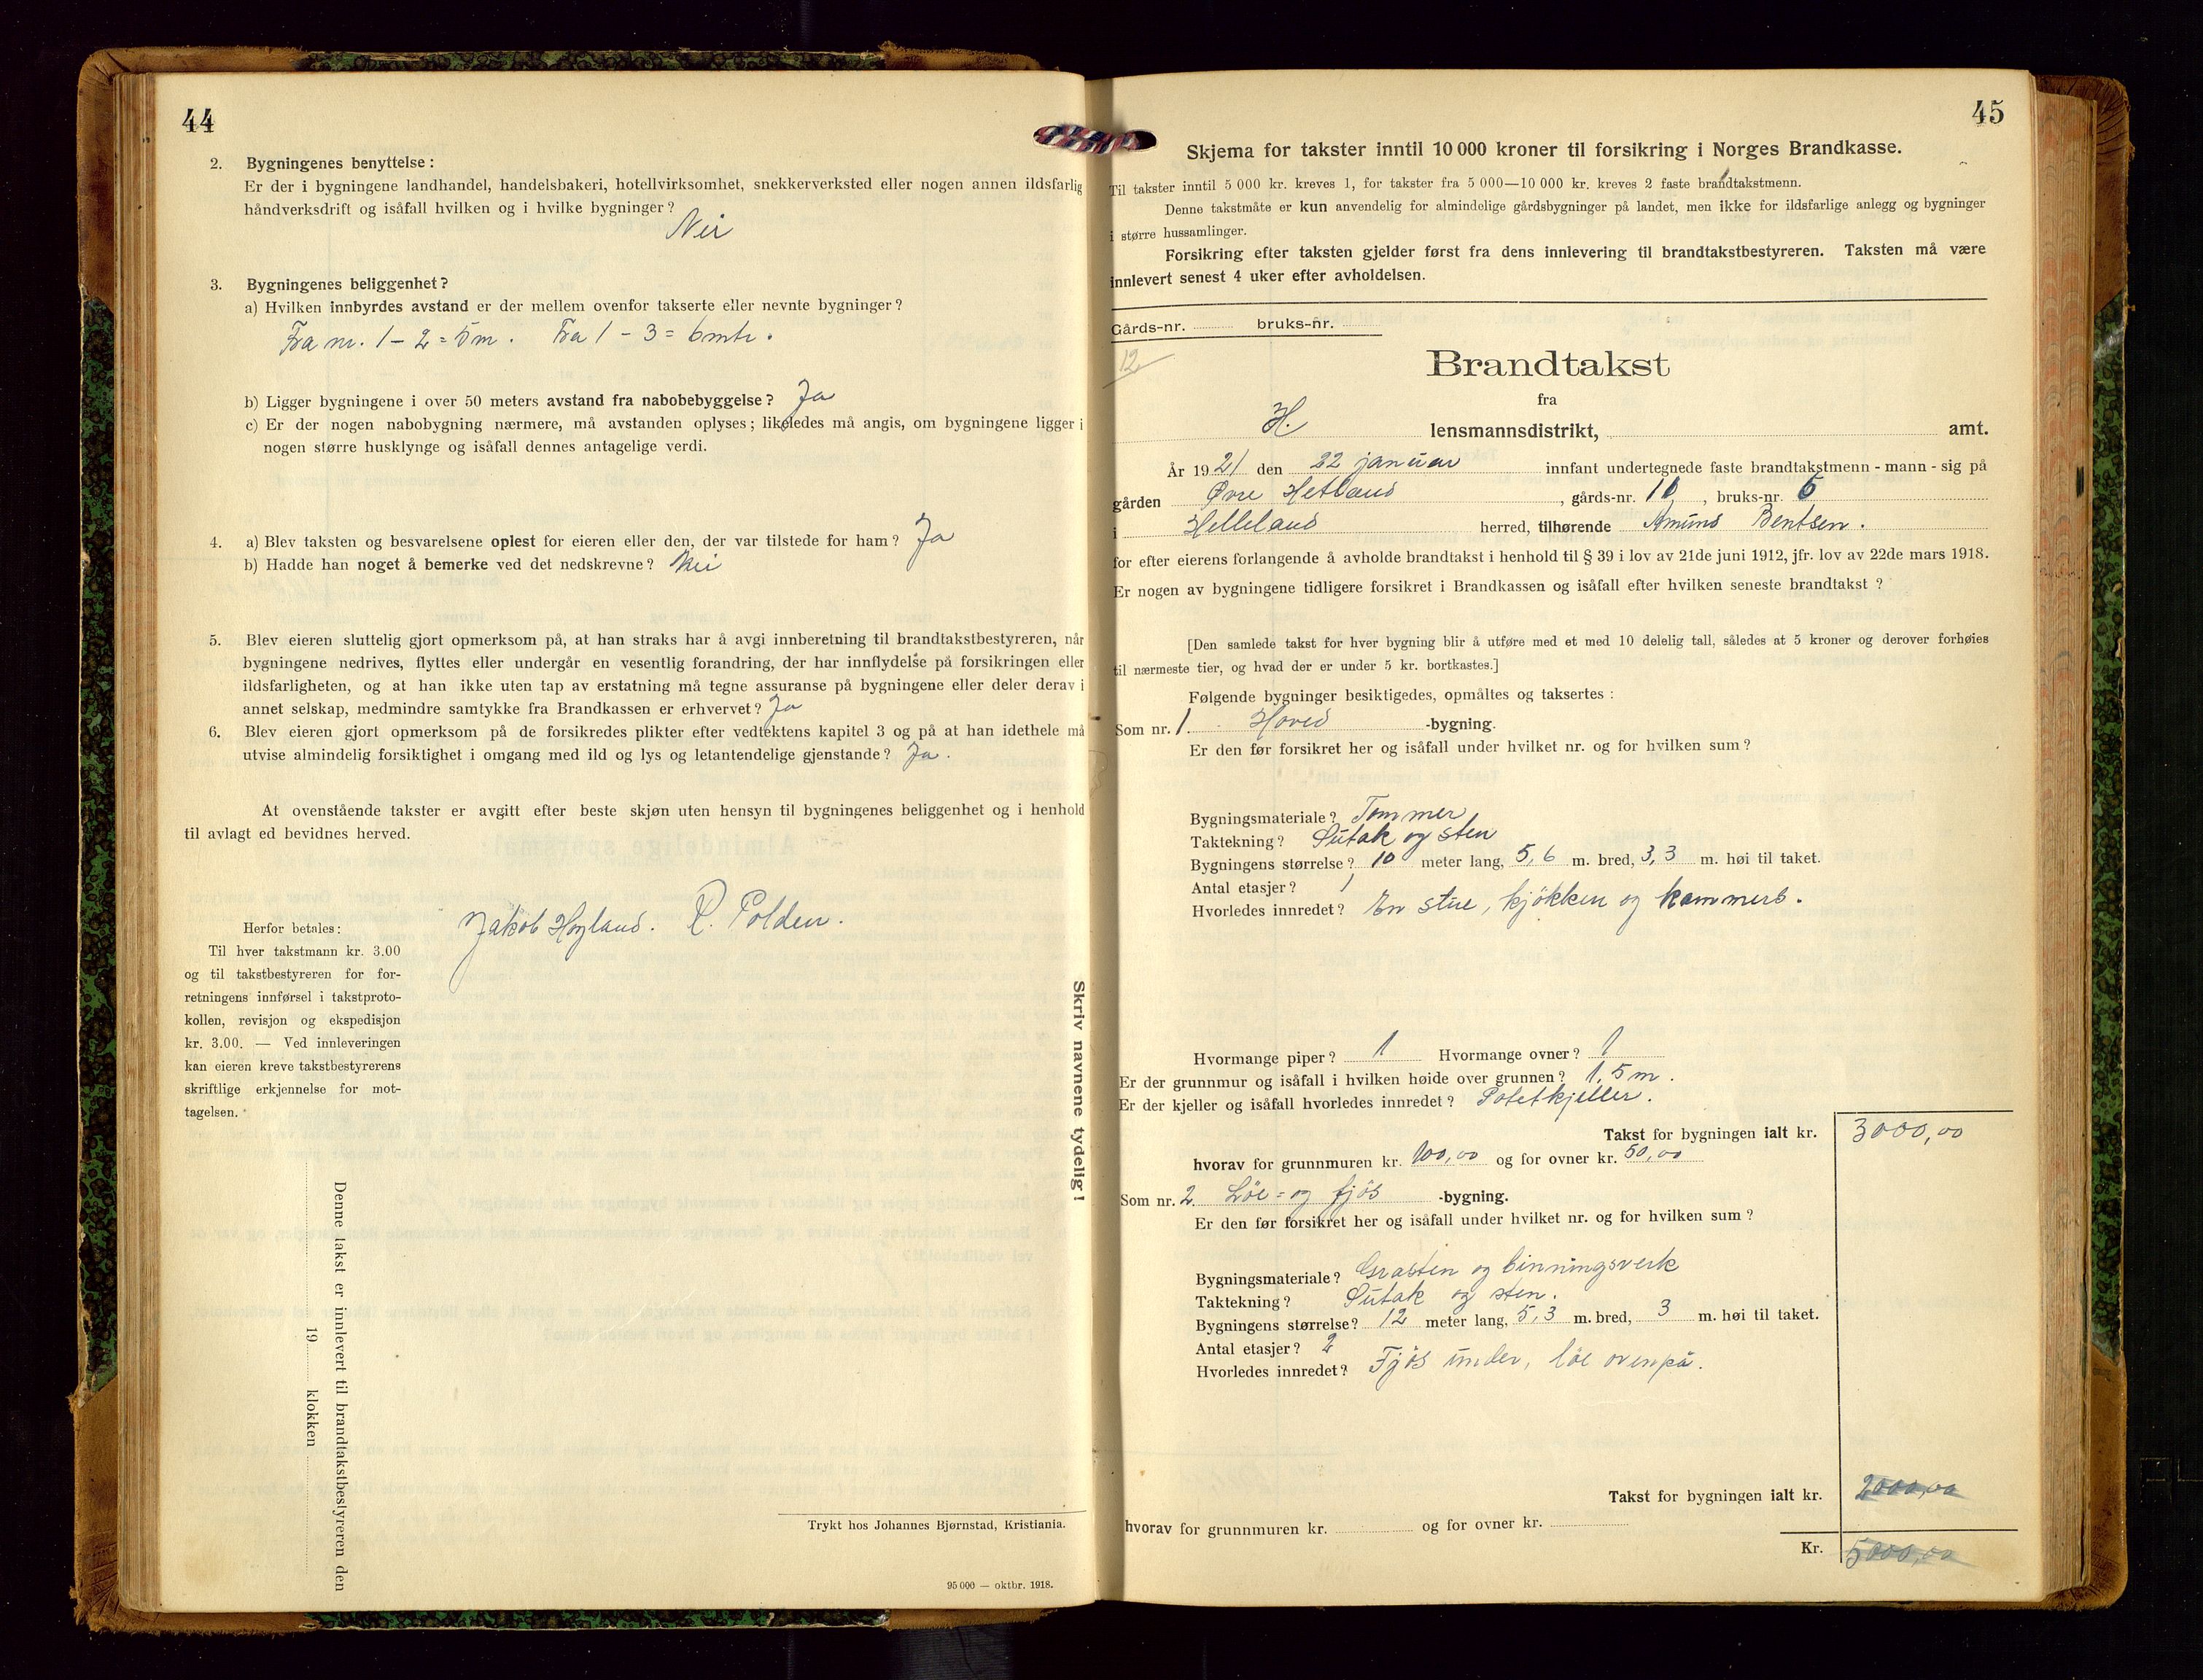 44
2. Bygningenes benyttelse:
Er der i bygningene landhandel, handelsbakeri, hotellvirksomhet, snekkerverksted eller nogen annen ildsfarlig
håndverksdrift og isåfall hvilken og i hvilke bygninger?
Nei
3. Bygningenes beliggenhet?
a) Hvilken innbyrdes avstand er der mellem ovenfor takserte eller nevnte bygninger?
Fra nr. 1 - 2 = 5 m. Fra 1 - 3 = 6 mtr.
b) Ligger bygningene i over 50 meters avstand fra nabobebyggelse? Ja
c) Er der nogen nabobygning nærmere, må avstanden oplyses; likeledes må angis, om bygningene ligger i
nogen større husklynge og isåfall dennes antagelige verdi.
4. a) Blev taksten og besvarelsene oplest for eieren eller den, der var tilstede for ham? Ja
b) Hadde han noget å bemerke ved det nedskrevne? Nei
5. Blev eieren sluttelig gjort opmerksom på, at han straks har å avgi innberetning til brandtakstbestyreren, når
bygningene nedrives, flyttes eller undergår en vesentlig forandring, der har innflydelse på forsikringen eller
ildsfarligheten, og at han ikke uten tap av erstatning må tegne assuranse på bygningene eller deler derav i
annet selskap, medmindre samtykke fra Brandkassen er erhvervet? Ja
6. Blev eieren gjort opmerksom på de forsikredes plikter efter vedtektens kapitel 3 og på at han idethele må
utvise almindelig forsiktighet i omgang med ild og lys og letantendelige gjenstande? Ja.
At ovenstående takster er avgitt efter beste skjøn uten hensyn til bygningenes beliggenhet og i henhold
til avlagt ed bevidnes herved.
Jakob Høyland. P. Polden.
Herfor betales:
Til hver takstmann kr. 3.00
og til takstbestyreren for for-
retningens innførsel i takstproto-
kollen, revisjon og ekspedisjon
kr. 3.00. — Ved innleveringen
kan eieren kreve takstbestyrerens
skriftlige erkjennelse for mot-
tagelsen.
Skriv navnene tydelig!
Denne takst er innlevert til brandtakstbestyreren den
19 klokken
Trykt hos Johannes Bjørnstad, Kristiania.
95 000 — oktbr. 1918.
45
Skjema for takster inntil 10 000 kroner til forsikring i Norges Brandkasse.
Til takster inntil 5 000 kr. kreves 1, for takster fra 5 000—10 000 kr. kreves 2 faste brandtakstmenn.
Denne takstmåte er kun anvendelig for almindelige gårdsbygninger på landet, men ikke for ildsfarlige anlegg og bygninger
i større hussamlinger.
Forsikring efter taksten gjelder først fra dens innlevering til brandtakstbestyreren. Taksten må være
innlevert senest 4 uker efter avholdelsen.
Gårds-nr. bruks-nr.
12
Brandtakst
fra
H. lensmannsdistrikt, amt.
År 1921 den 22 januar innfant undertegnede faste brandtakstmenn - mann - sig på
gården Øvre Hetland, gårds-nr. 10, bruks-nr. 6
i Helleland herred, tilhørende Amund Bentsen.
for efter eierens forlangende å avholde brandtakst i henhold til § 39 i lov av 21de juni 1912, jfr. lov av 22de mars 1918.
Er nogen av bygningene tidligere forsikret i Brandkassen og isåfall efter hvilken seneste brandtakst?
[Den samlede takst for hver bygning blir å utføre med et med 10 delelig tall, således at 5 kroner og derover forhøies
til nærmeste tier, og hvad der er under 5 kr. bortkastes.]
Følgende bygninger besiktigedes, opmåltes og taksertes:
Som nr. 1. Hoved -bygning.
Er den før forsikret her og isåfall under hvilket nr. og for hvilken sum?
Bygningsmateriale? Tømmer
Taktekning? Sutak og sten
Bygningens størrelse? 10 meter lang, 5,6 m. bred, 3,3 m. høi til taket.
Antal etasjer? 1
Hvorledes innredet? En stue, kjøkken og kammers.
Hvormange piper? 1 Hvormange ovner? 1
Er der grunnmur og isåfall i hvilken høide over grunnen? 1,5 m.
Er der kjeller og isåfall hvorledes innredet? Potetkjeller.
Takst for bygningen ialt kr. 3000,00
hvorav for grunnmuren kr. 100,00 og for ovner kr. 50,00
Som nr. 2. Løe= og fjøs -bygning.
Er den før forsikret her og isåfall under hvilket nr. og for hvilken sum?
Bygningsmateriale? Gråsten og binningsverk
Taktekning? Sutak og sten.
Bygningens størrelse? 12 meter lang, 5,3 m. bred, 3 m. høi til taket.
Antal etasjer? 2
Hvorledes innredet? Fjøs under, løe ovenpå.
Takst for bygningen ialt kr. 2000,00
hvorav for grunnmuren kr. og for ovner kr.
Kr. 5000,00